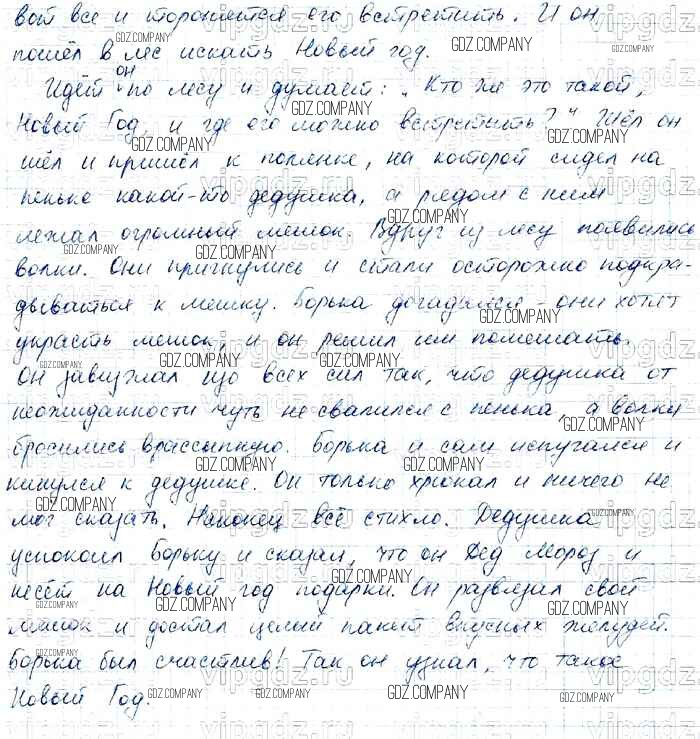 вой все и торопятся его встретить. И он
пошёл в лес искать Новый год.
Идёт он по лесу и думает: „Кто же это такой,
Новый Год, и где его можно встретить?" Шёл он
шёл и пришёл к полянке, на которой сидел на
пеньке какой-то дедушка, а рядом с ним
лежал огромный мешок. Вдруг из лесу появились
волки. Они пригнулись и стали осторожно подкра-
дываться к мешку. Борька догадался - они хотят
украсть мешок, и он решил им помешать.
Он завизжал изо всех сил так, что дедушка от
неожиданности чуть не свалился с пенька, а волки
бросились врассыпную. Борька и сам испугался и
кинулся к дедушке. Он только хрюкал и ничего не
мог сказать. Наконец всё стихло. Дедушка
успокоил Борьку и сказал, что он Дед Мороз и
несёт на Новый год подарки. Он развязал свой
мешок и достал целый пакет вкусных желудей.
Борька был счастлив! Так он узнал, что такое
Новый Год.
GDZ.COMPANY
vipgdz.ru